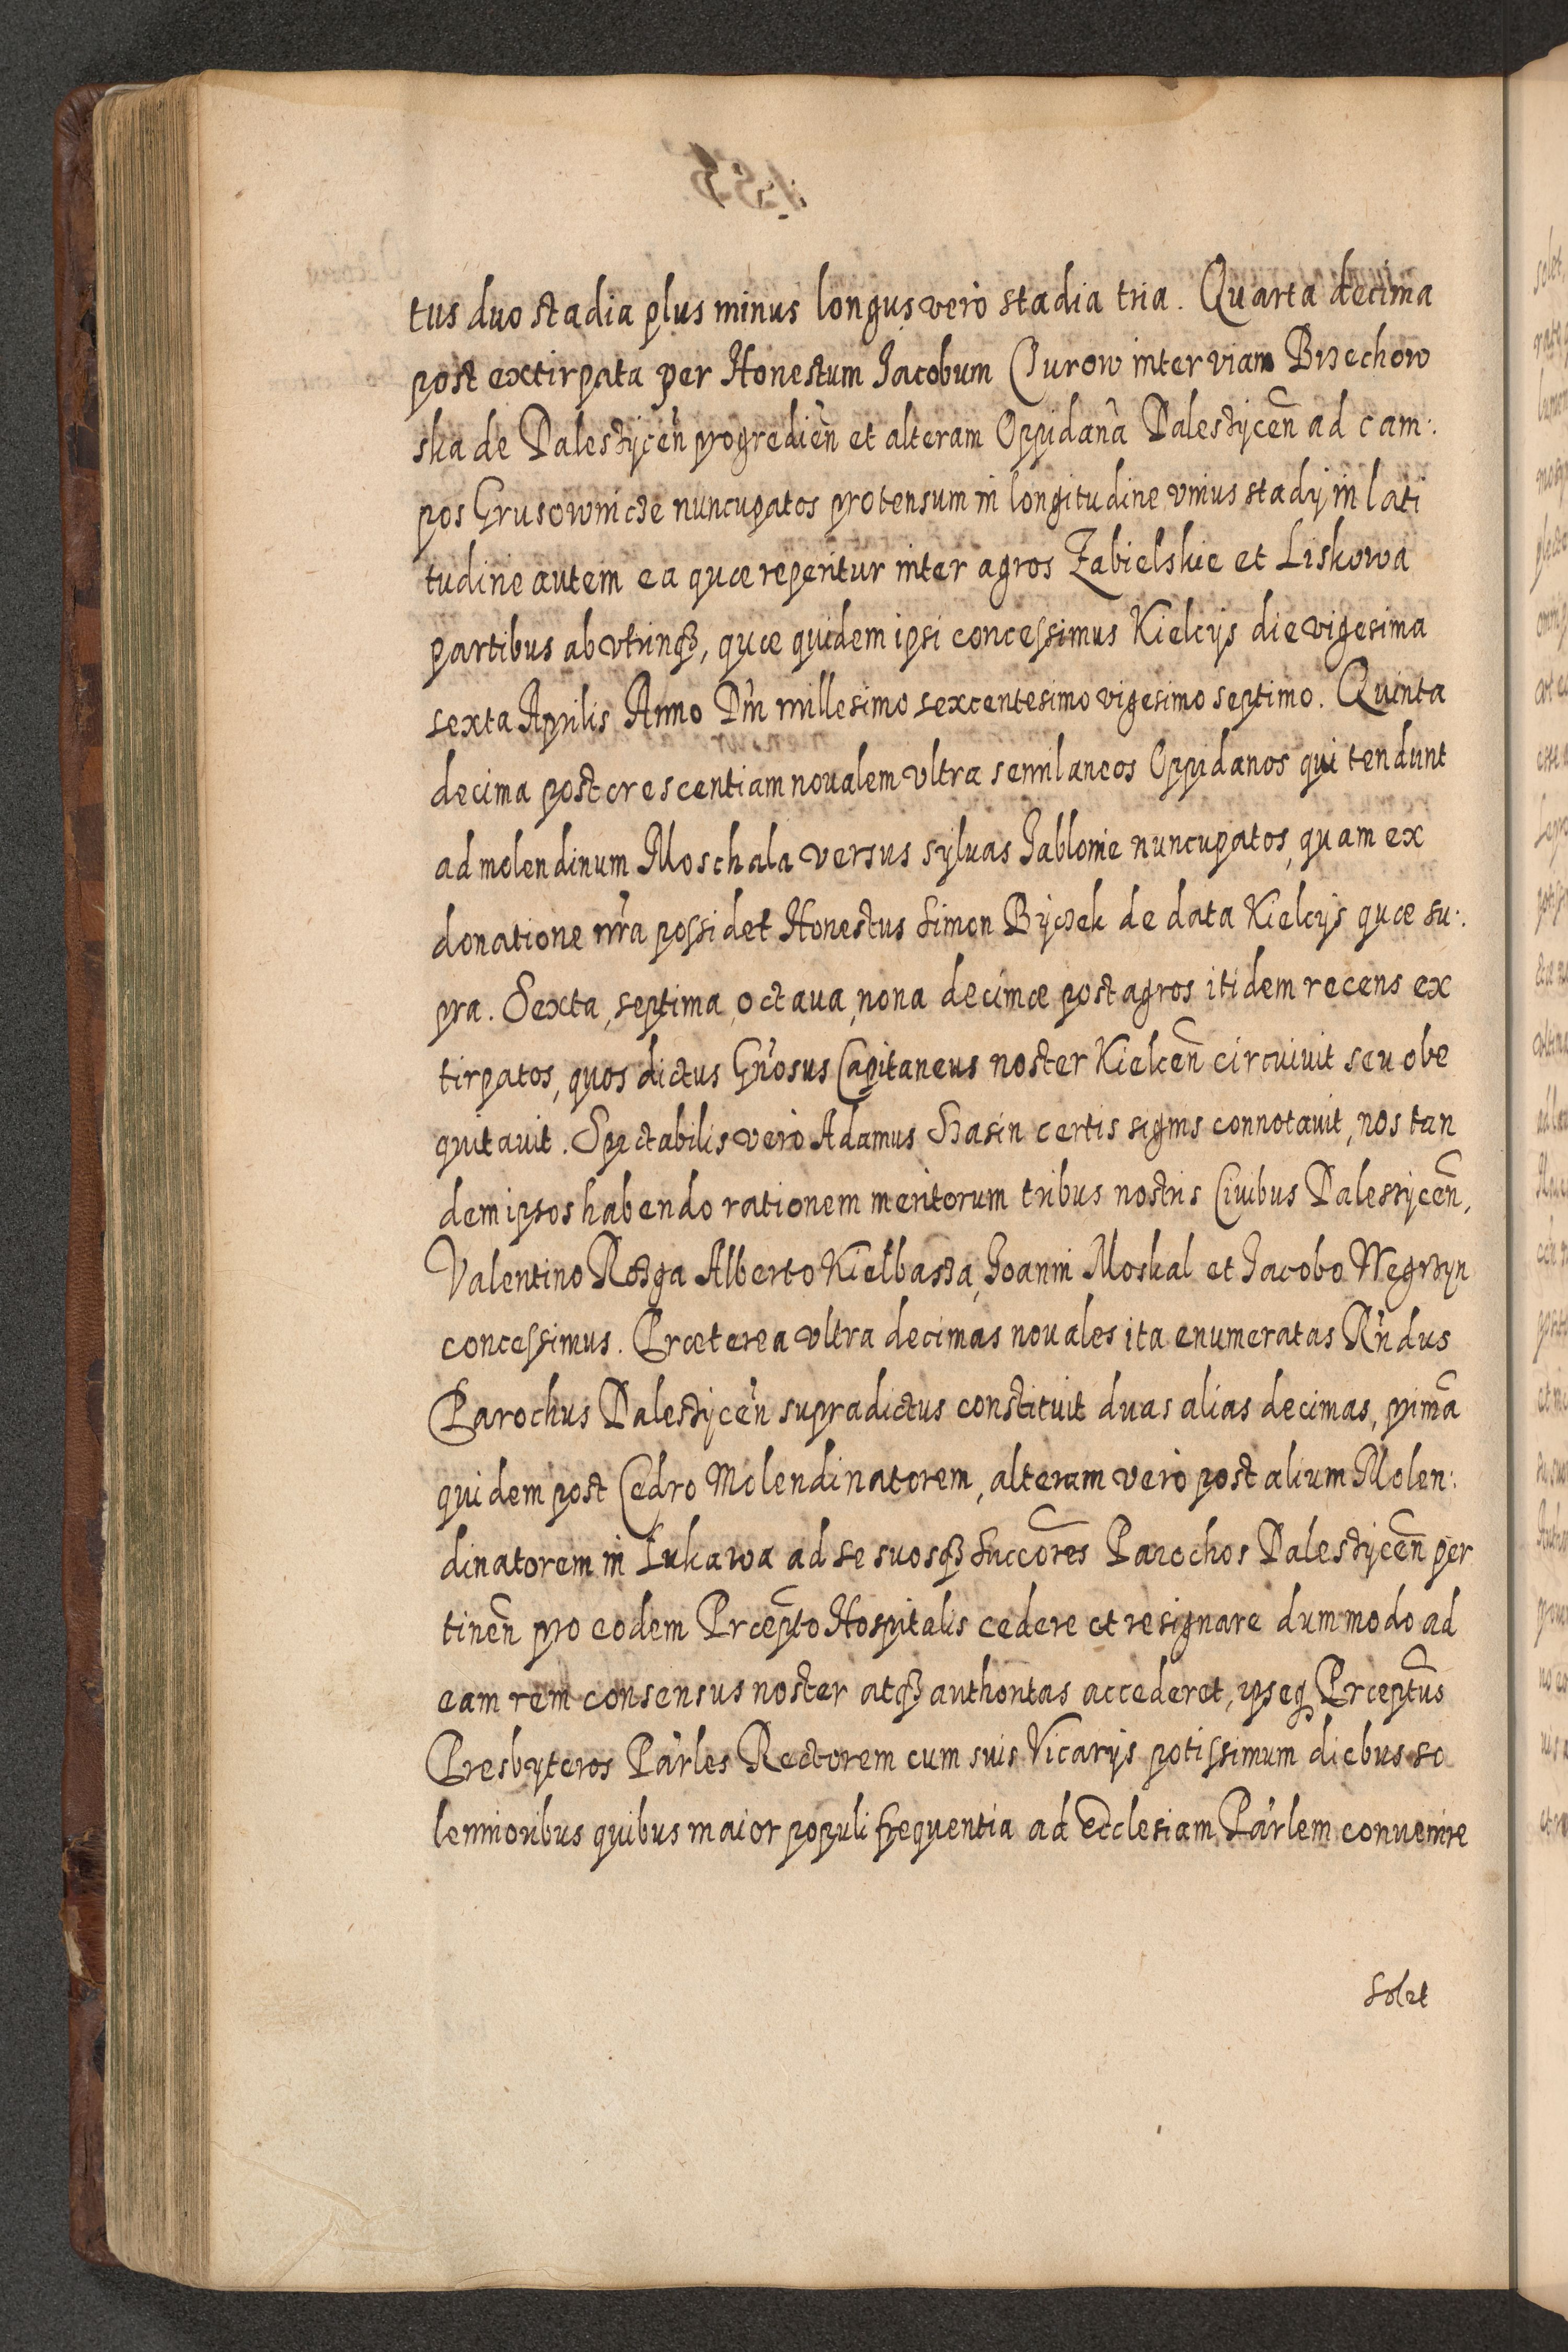 tus duo stadia plus minus longus verò stadia tria. Quarta decima
post extirpata per Honestum Jacobum Czurow inter viam Brzechow
ska de Daleszÿcen̄ progredien̄ et alteram Oppidanā Daleszÿcen̄ ad cam:
pos Grusownicze nuncupatos protensum in longitudine vnius stadÿ, in lati
tudine autem ea quæ reperitur inter agros Zabielskie et Liskowa
partibus ab vtrinqꝫ, quæ quidem ipsi concessimus Kielcÿs die vigesima
sexta Aprilis Anno Dn̄i millesimo sexcentesimo vigesimo septimo. Quinta
decima post crescentiam noualem vltra semilaneos Oppidanos qui tendunt
ad molendinum Moschala versus syluas Jablonie nuncupatos, quam ex
donatione nr̄a possidet Honestus Simon Bÿczek de data Kielcÿs quæ su:
pra. Sexta, septima, octaua, nona decimæ post agros itidem recens ex
tirpatos, quos dictus Gn̄osus Capitaneus noster Kielcen̄ circuiuit seu obe
quitauit. Spectabilis verò Adamus Szasin certis signis connotauit, nos tan
dem ipsos habendo rationem meritorum tribus nostris Ciuibus Daleszÿcen̄,
Valentino Rozga Alberto Kiełbasza, Joanni Moskal et Jacobo Węgrzyn
concessimus. Præterea vltra decimas nouales ita enumeratas Rn̄dus
Parochus Daleszÿcen̄ supradictus constituit duas alias decimas, primā
quidem post Cedro Molendinatorem, alteram verò post alium Molen:
dinatorem in Łukawa ad se suosqꝫ Succor̄es Parochos Daleszÿcen̄ per
tinen̄ pro eodem Præp̄to Hospitalis cedere et resignare dummodo ad
eam rem consensus noster atqꝫ authoritas accederet, ipseq̨ Præpt̄us
Presbyteros Par̄les Rectorem cum suis Vicarÿs potissimum diebus so
lennioribus quibus maior populi frequentia ad Ecclesiam Par̄lem conuenire
Solet